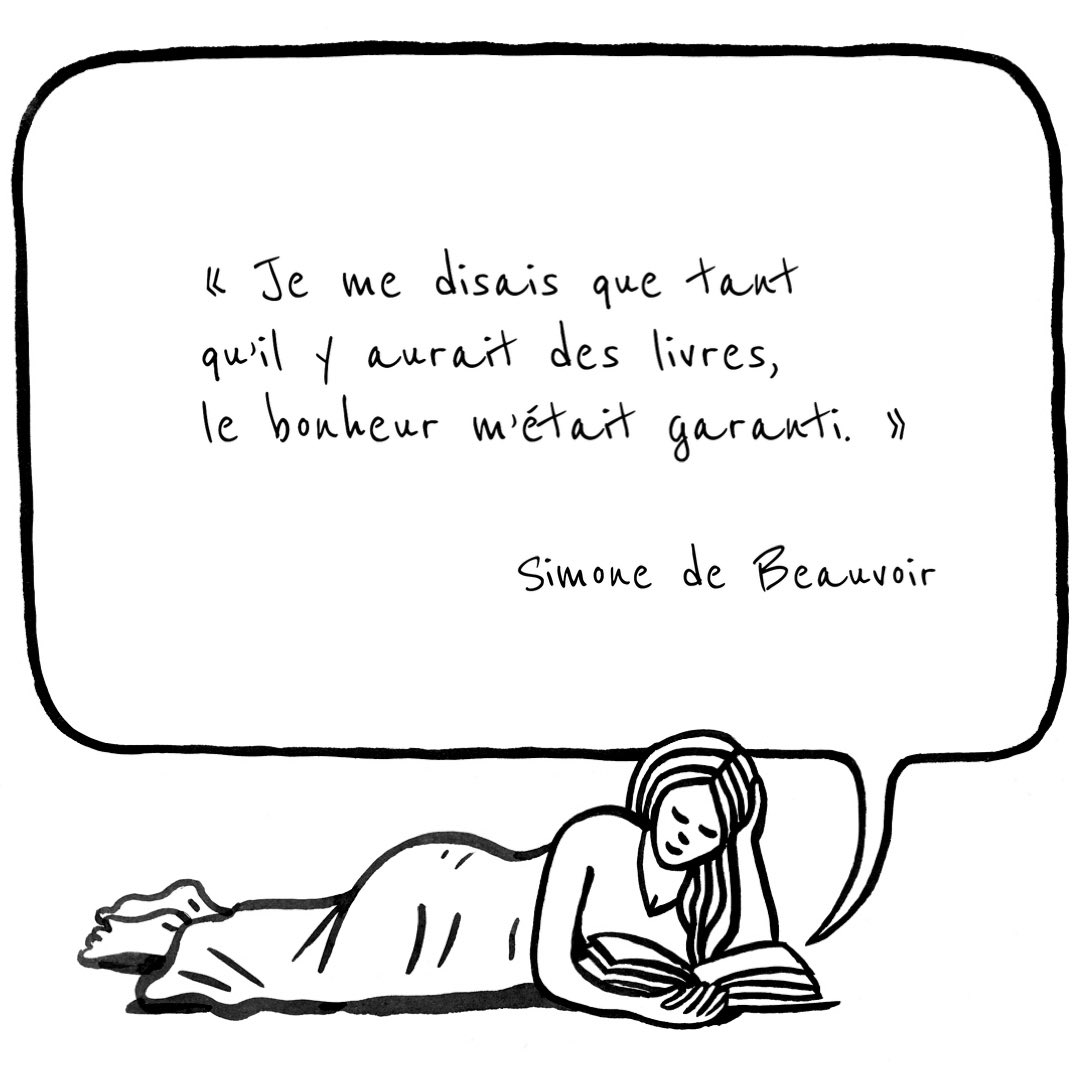 « Je me disais que tant
qu'il y aurait des livres,
le bonheur m'était garanti. »
Simone de Beauvoir